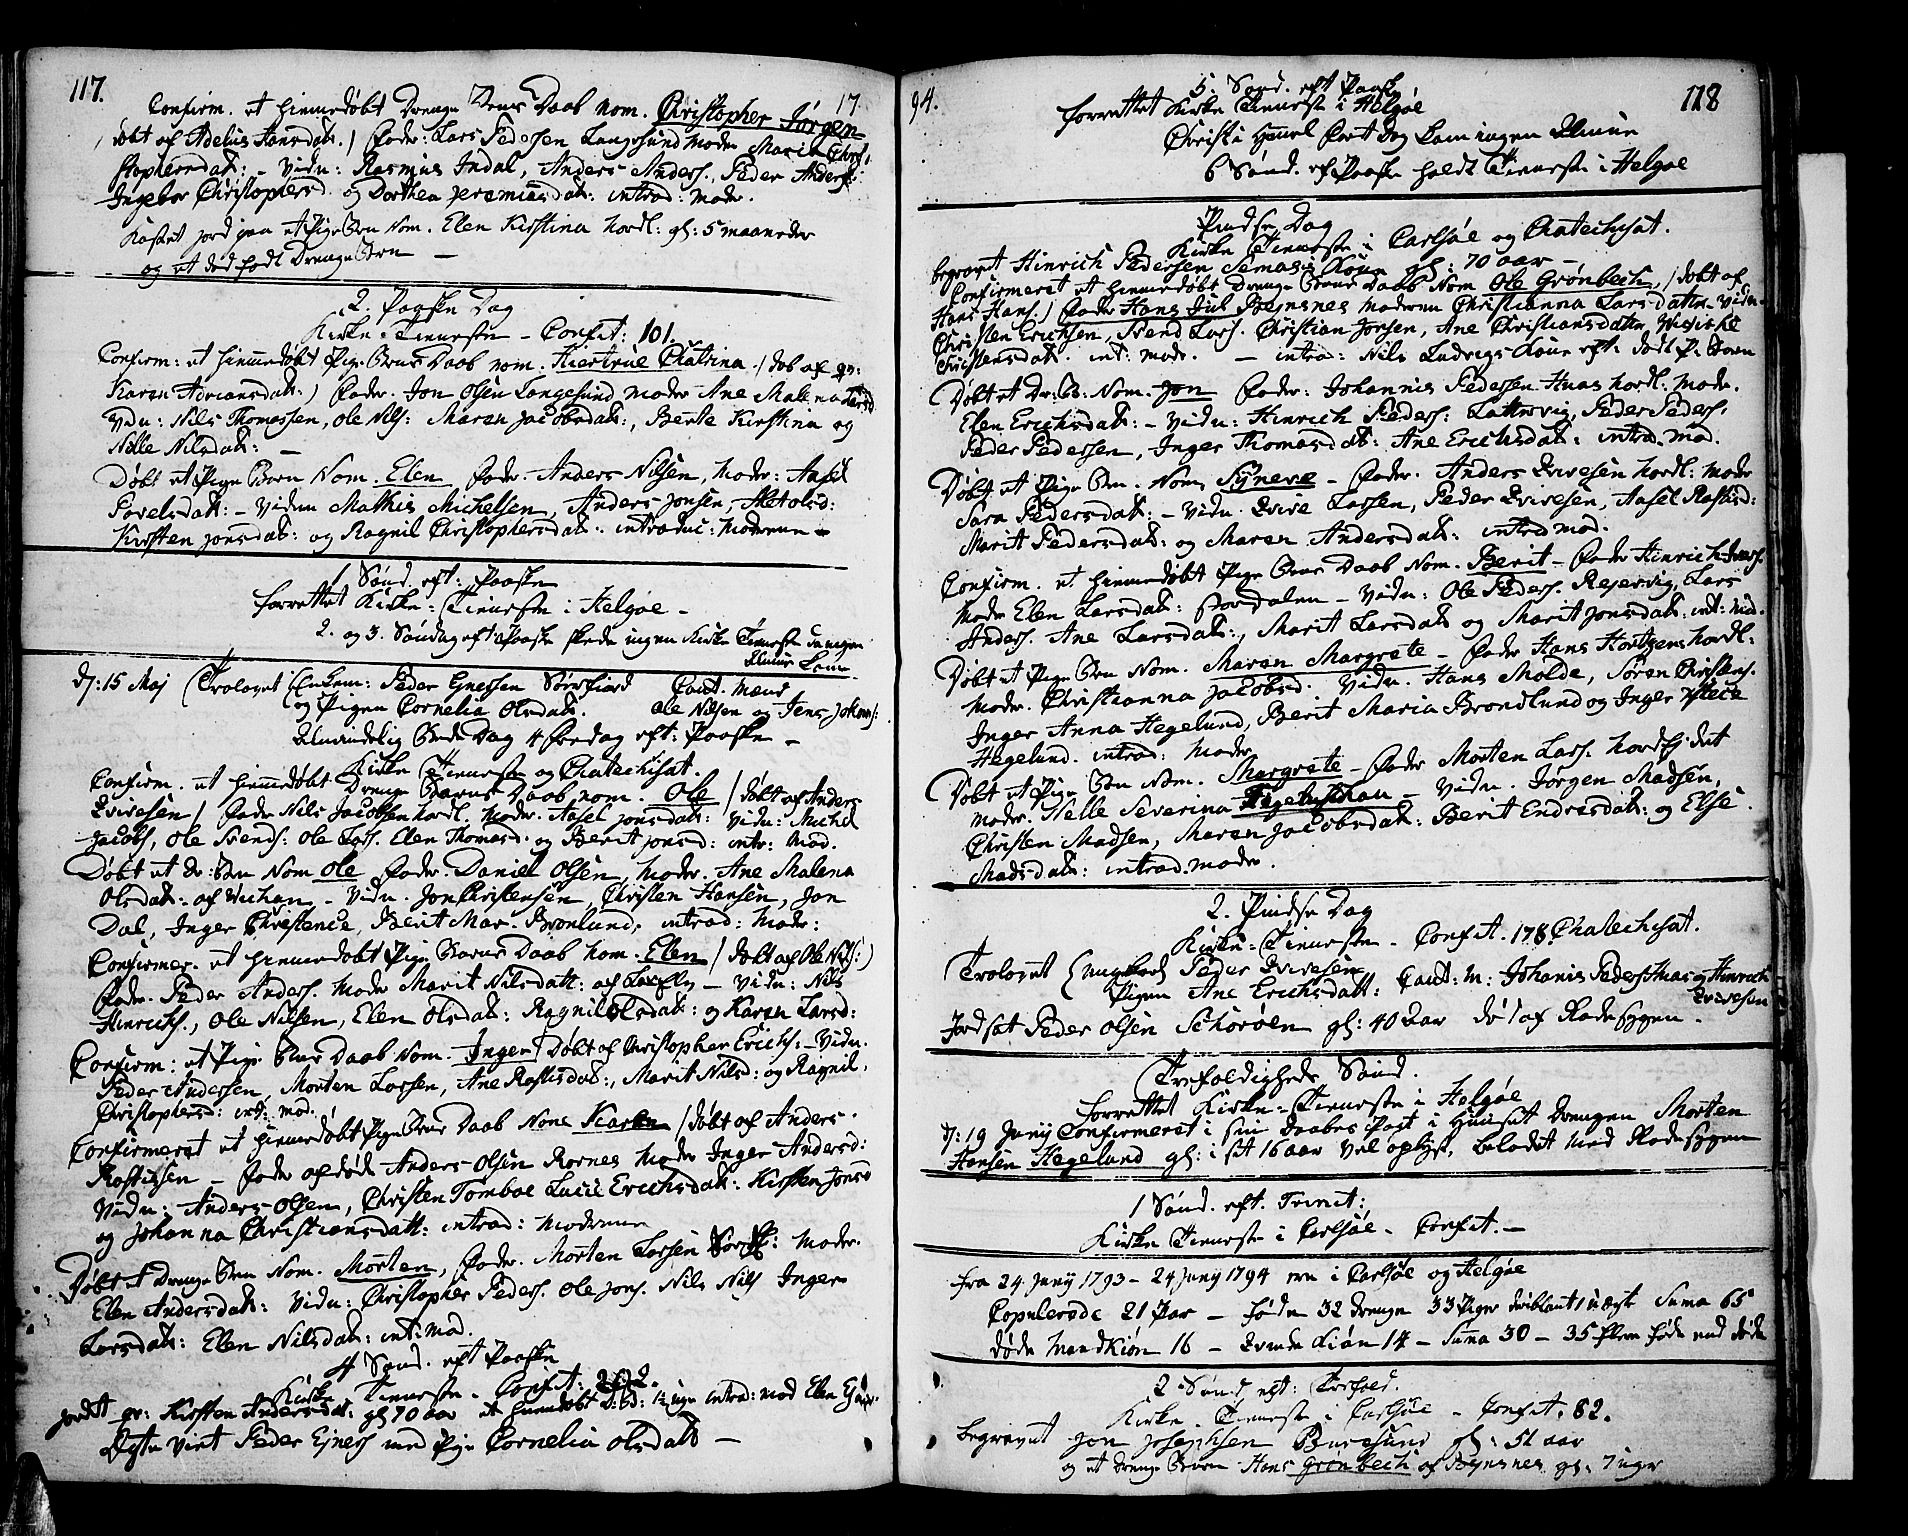 117.
17
Confirm. et hiemmedøbt Drenge Barns Daab nom. Christopher Jørgen
/døbt af Adelus Hansdatt./ Fader: Lars Pedersen Langesund Moder Marit Chri-
stophersdatt: - Vidn: Rasmus Indal, Anders Anders. Peder Anders:
Ingebor Christophersd. og Dorthea Jeremiasdatt: introd: Moder.
Kastet Jord paa et Pige Barn Nom. Elen Kirstina Nordl: gl: 5 maaneder
og et død født Drenge Barn -
2. Paaske Dag
Kirke-Tieneste - Confit: 101.
Confirm: et hiemmedøbt Pige Barns Daab nom. Kiertrue Chatrina /døb af
Karen Adriansdatt:) Fader: Jon Olsen Langesund Moder Ane Malena Larsd
Vidn: Nils Thomassen, Ole Nils: Maren Jacobsdatt:, Berte Kirstina og
Nelle Nilsdatt: -
Døbt et Pige Barn Nom. Elen Fader: Anders Nilsen, Moder: Aasel
Povelsdatt: - Vidnu Mathis Michelsen, Anders Jonsen,
Kirsten Jonsdatt: og Ragnil Christophersdatt: introduc: Moderen -
1 Sønd. eft: Paaske
Forrettet Kirke-Tieneste i Helgøe -
2. og 3. Søndag eft: Paaske skede ingen Kirke Tieneste da ingen
Almue kom
d: 15 Maj Trolovet Enkem: Peder Gnessen Sørfiord Caut. Mænd
og Pigen Cornelia Olsdatt. Ole Nilsen og Jens Johans:
Almindelig Bede Dag 4 Fredag eft: Paaske -
Kirke Tieneste og Chatechisat.
Confirm. et hiemmedøbt Drenge Barns Daab nom. Ole /døbt af Anders
Evirsen/ Fader Nils Jacobsen Nordl. Moder. Aasel Jonsdatt: Vidn: Michel
Jacobs, Ole Svends: Ole Lars. Elen Thomasd. og Berit Jonsd: intr: Mod.
Døbt et Dr: Barn Nom Ole Fader. Daniel Olsen, Moder. Ane Malena
Olsdatt: - Vidn. Jon Christensen, Christen Hansen, Jon
Dal, Inger Christence, Berit Mar. Bronlund, introd: Moder:
Confirmer. et hiemmedøbt Pige Barns Daab nom. Elen /døbt af Ole Nils:)
Fader. Peder Anders. Moder Marit Nilsdatt: - Vidn: Nils
Hinrichs., Ole Nilsen, Elen Olsdatt: Ragnil Olsdatt: og Karen Larsd:
Confirm: et Pige Barns Daab Nom. Inger /Døbt af Christopher Erichs: - Vidn.
Peder Andersen, Morten Larsen, Ane Rastisdatt:, Marit Nilsd: og Ragnil.
Christophersd: int: mod.
Confirmeret et hiemmedøbt Pige Barns Daab Nom. Karen /døbt af Anders
Rastissen - Fader afdøde Anders Olsen Rornes Moder Inger Andersd:
Vidn: Anders Olsen, Christen Tomboe Lucie Erichsdatt: Kirsten Jonsd
og Johanna Christiansdatt: introd: Moderen
Døbt et Drenge Barn Nom. Morten, Fader. Morten Larsen Moder.
Elen Andersdatt: Vidn: Christopher Peders. Ole Jons. Nils Nils Inger
Larsdatt: Elen Nilsdatt: int: mod.
4 Sønd. eft Paaske
Kirke Tieneste. Confit: 202.
Jordet Kirsten Andersdatt: gl 70 aar et hiemmedøbt intrad: mod Elen
Ægte Viet Peder Ejners med Pige Cornelia Olsdatt -
94.
118
5. Sønd. eft Paaske
Forrettet Kirke Tieneste i Helgøe
Christi Himel Fart Dag kom ingen Almue
6 Sønd. eft Paaske holdt Tieneste i Helgøe
Pindse Dag
Kirke Tieneste i Carlsøe og Chatechisat.
begravet Hinrich Pedersen gl: 70 aar -
Confirmeret et hiemmedøbt Drenge Barns Daab Nom Ole Grønbech, /døbt af
Hans Hans.) Fader Hans Jul Bognsnes Moderen Christianna Larsdatter Vidn-
Christen Erichsen, Svend Lars. Christian Jonsen, Ane Christiansdatter, Wivicke
Christensdatt. int: moder. - intro: Nils Ludvigs Kone eft: død P: Barn
Døbt et Dr: B: Nom. Jon Fader: Johannis Pedersen Nordl: Moder.
Elen Erichsdatt: - Vidn: Hinrich Peders: Lattervig, Peder Peders,
Peder Pedersen, Inger Thomasdatt: Ane Erichsdatt: introd. Mod.
Døbt et Pige Bn. Nom. Synere - Fader. Anders Evirsen Nordl: Moder
Sara Pedersdatt: - Vidn. Evire Larsen, Peder Evirsen, Aasel Rastisd:
Marit Pedersdatt: og Maren Andersdatt: introd mod.
Confirm. et hiemmedøbt Pige Barns Daab Nom. Berit - Fader Hinrich
Moder Elen Larsdatt: - Vidn: Ole Peders. Rejervig, Lars
Anders. Ane Larsdatt:, Marit Larsdatt og Marit Jonsdatt: int: mod.
Døbt et Pige Bn Nom. Maren Margrete - Fader Hans Nordl:
Moder. Christianna Jacobsd. Vidn. Hans Molde, Søren Christens.
Inger Anna Hegelund, Berit Maria Brondlund og Inger
Hegelund. introd: Moder
Døbt et Pige Bn Nom. Margrete - Fader Morten Lars.
Moder. Nelle Severina - Vidn. Jørgen Madsen,
Christen Madsen, Maren Jacobsdatt: Berit Endresdatt: og Else
Madsdatt: introd. moder.
2. Pindse Dag
Kirke-Tieneste. Confit. 178. Chatechisat.
Trolovet Ungkarl Peder Evirsen
Pigen Ane Erichsdatt: Caut: M: Johanis Peders. og Hinrich
Evirsen
Jordsat Peder Olsen Schorøen gl: 40 Aar død af Radesygen.
Trefoldigheds Sønd.
Forrettet Kirke-Tieneste i Helgøe
d: 19 Junij Confirmeret i sin Daabes Pagt i Huuset Drengen Morten
Hansen Hegelund gl: i sit 16 aar vel oplyst, beladet med Radesygen
1 Sønd. eft. Trinit:
Kirke Tieneste i Carlsøe - Confit. -
Fra 24. Junij 1793 - 24 Junij 1794 ere i Carlsøe og Helgøe
Copulerede 21 Par - Fødde 32 Drenge 33 Piger deriblant 1 uægte Suma 65
døde Mandkiøn 16 - Qvinde Kiøn 14 - Suma 30 - 35 flere fødde end døde
2 Sønd eft: Trefold.
Kirke. Tieneste i Carlsøe - Confit. 82.
Begravet Jon Josephsen Buresund gl: 51 aar
og et Drenge Barn Hans Grønbech af Bognsnes gl: 7 uger